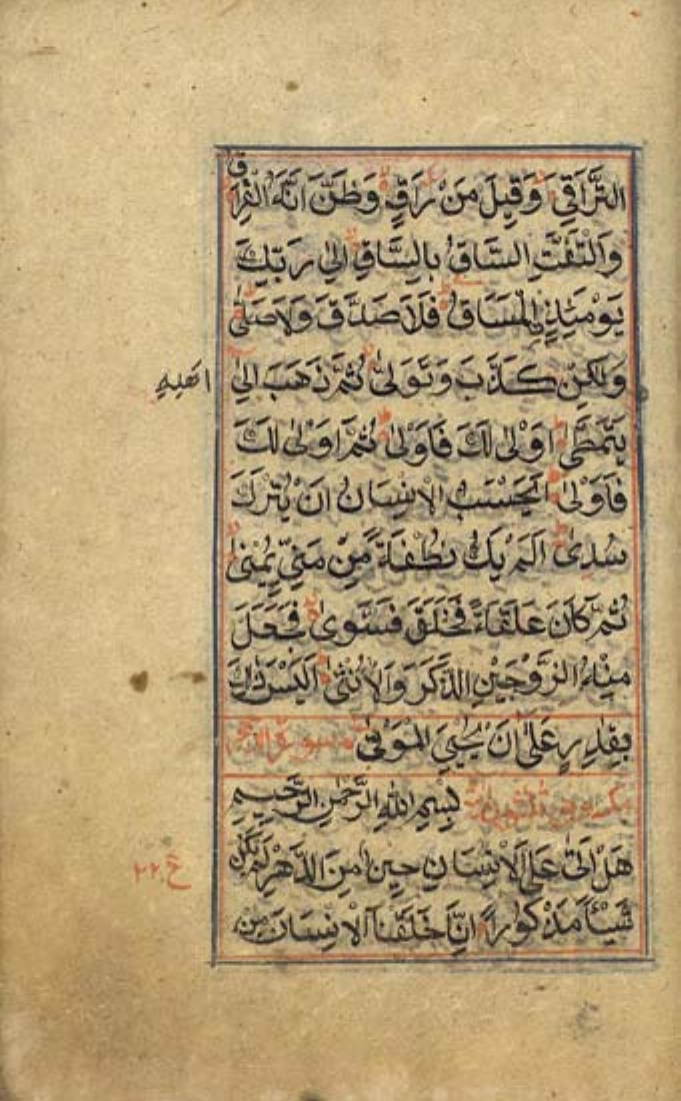 التَّرَاقِيَ وَقِيلَ مَنْ رَاقٍ وَظَنَّ اَنَّهُ الْفِرَاقُ
وَالْتَفَّتِ السَّاقُ بِالسَّاقِ اِلٰى رَبِّكَ
يَوْمَئِذِ نِ الْمَسَاقُ فَلَا صَدَّقَ وَلَا صَلّٰى
وَلٰكِنْ كَذَّبَ وَتَوَلّٰى ثُمَّ ذَهَبَ اِلٰى
اهله
يَتَمَطّٰى اَوْلٰى لَكَ فَاَوْلٰى ثُمَّ اَوْلٰى لَكَ
فَاَوْلٰى اَيَحْسَبُ الْاِنْسَانُ اَنْ يُتْرَكَ
سُدًى اَلَمْ يَكُ نُطْفَةً مِنْ مَنِيٍّ يُمْنٰى
ثُمَّ كَانَ عَلَقَةً فَخَلَقَ فَسَوّٰى فَجَعَلَ
مِنْهُ الزَّوْجَيْنِ الذَّكَرَ وَالْاُنْثٰى اَلَيْسَ ذٰلِكَ
بِقٰدِرٍ عَلٰى اَنْ يُحْيِيَ الْمَوْتٰى
بِسْمِ اللهِ الرَّحْمٰنِ الرَّحِيْمِ
هَلْ اَتٰى عَلَى الْاِنْسَانِ حِينٌ مِنَ الدَّهْرِ لَمْ يَكُنْ
شَيْئًا مَذْكُورًا اِنَّا خَلَقْنَا الْاِنْسَانَ مِنْ